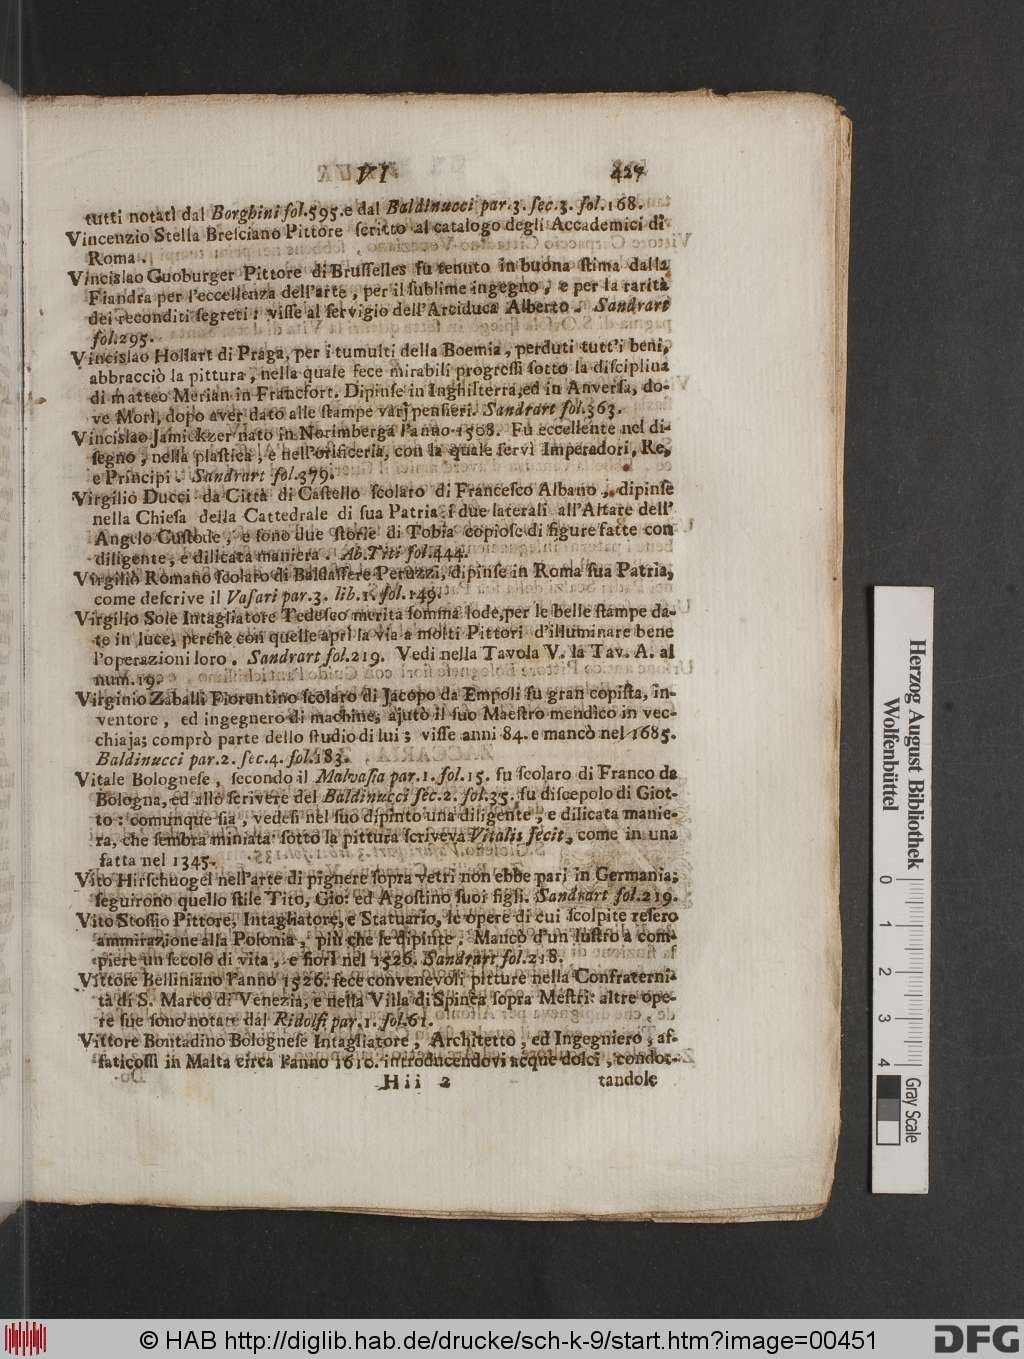 VI 427
tutti notati dal Borghini fol.595.e dal Baldinucci par.3. ſec.3. fol.168.
Vincenzio Stella Breſciano Pittore ſcritto al catalogo degli Accademici di
Roma.
Vincislao Guoburger Pittore di Bruſſelles fu tenuto in buona ſtima dalla
Fiandra per l'eccellenza dell'arte, per il ſublime ingegno, e per la rarità
dei reconditi ſegreti: viſſe al ſervigio dell'Arciduca Alberto. Sandrart
fol.295.
Vincislao Hollart di Praga, per i tumulti della Boemia, perduti tutt'i beni,
abbracciò la pittura, nella quale fece mirabili progreſſi ſotto la diſciplina
di matteo Merian in Francfort. Dipinſe in Inghilterra,ed in Anverſa, do-
ve Morì, dopo aver dato alle ſtampe varj penſieri. Sandrart fol.363.
Vincislao Jamickzer nato in Norimberga l'anno 1508. Fu eccellente nel di-
ſegno, nella plaſtica, e nell'orificeria, con la quale ſervì Imperadori, Re,
e Principi. Sandrart fol.379.
Virgilio Ducci da Città di Caſtello ſcolaro di Franceſco Albano, dipinſe
nella Chieſa della Cattedrale di ſua Patria i due laterali all'Altare dell'
Angelo Cuſtode, e ſono due ſtorie di Tobia copioſe di figure fatte con
diligente, e dilicata maniera. Ab.Titi fol.444.
Virgilio Romano ſcolaro di Baldaſſere Peruzzi, dipinſe in Roma ſua Patria,
come deſcrive il Vaſari par.3. lib.1. fol.149.
Virgilio Sole Intagliatore Tedeſco merita ſomma lode,per le belle ſtampe da-
te in luce, perchè con quelle aprì la via a molti Pittori d'illuminare bene
l'operazioni loro. Sandrart fol.219. Vedi nella Tavola V. la Tav. A. al
num.19.
Virginio Zaballi Fiorentino ſcolaro di Jacopo da Empoli fu gran copiſta, in-
ventore, ed ingegnero di machine; ajutò il ſuo Maeſtro mendico in vec-
chiaja; comprò parte dello ſtudio di lui; viſſe anni 84. e mancò nel 1685.
Baldinucci par.2. ſec.4. fol.183.
Vitale Bologneſe, ſecondo il Malvaſia par.1. fol.15. fu ſcolaro di Franco da
Bologna, ed allo ſcrivere del Baldinucci ſec.2. fol.35. fu diſcepolo di Giot-
to: comunque ſia, vedeſi nel ſuo dipinto una diligente, e dilicata manie-
ra, che ſembra miniata: ſotto la pittura ſcriveva Vitalis fecit, come in una
fatta nel 1345.
Vito Hirſchuogel nell'arte di pignere ſopra vetri non ebbe pari in Germania;
ſeguirono quello ſtile Tito, Gio: ed Agoſtino ſuoi figli. Sandrart fol.219.
Vito Stoſſio Pittore, Intagliatore, e Statuario, le opere di cui ſcolpite reſero
ammirazione alla Polonia, più che le dipinte. Mancò d'un luſtro a com-
piere un ſecolo di vita, e fiorì nel 1526. Sandrart fol.218.
Vittore Belliniano l'anno 1526. fece convenevoli pitture nella Confraterni-
tà di S. Marco di Venezia, e nella Villa di Spinea ſopra Meſtri: altre ope-
re ſue ſono notate dal Ridolfi par.1. fol.61.
Vittore Bontadino Bologneſe Intagliatore, Architetto, ed Ingegniero, af-
faticoſſi in Malta circa l'anno 1610. introducendovi acque dolci, condot-
Hii 2 tandole
Herzog August Bibliothek
Wolfenbüttel
0 1 2 3 4
Gray Scale
© HAB http://diglib.hab.de/drucke/sch-k-9/start.htm?image=00451
DFG